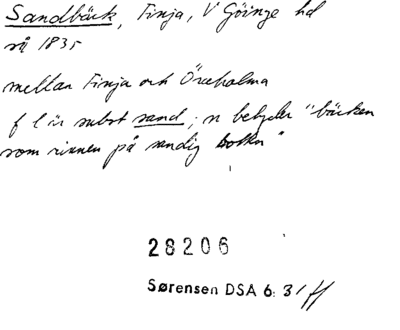 Sandbäck, Finja, V Göinge hd
så 1835
mellan Finja och Öreholma
f l är subst sand; n betyder "bäcken
som rinner på sandig botten"
28206
Sørensen DSA 6: 31 ff